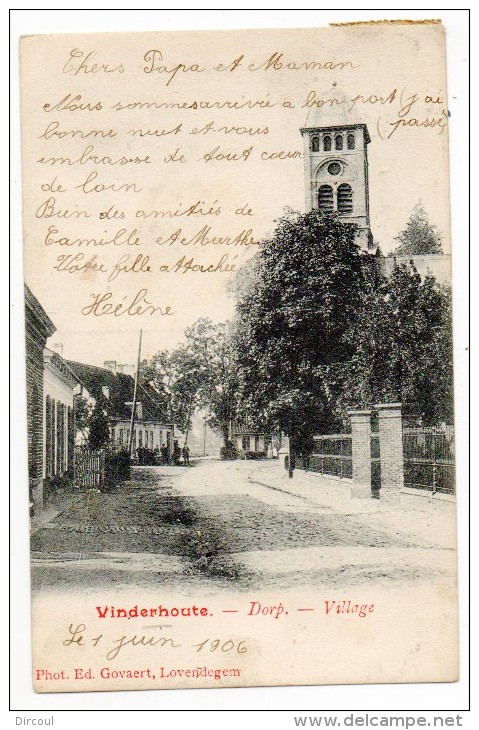 Chers Papa et Maman
Nous sommes arrivé a bon port (j'ai
bonne nuit et vous (passé)
embrasse de tout coeur
de loin
Bien des amitiés de
Camille et Marthe
Votre fille attachée
Hélène
Vinderhoute. — Dorp. — Village
Le 1 juin 1906
Phot. Ed. Govaert, Lovendegem
Dircoul
www.delcampe.net